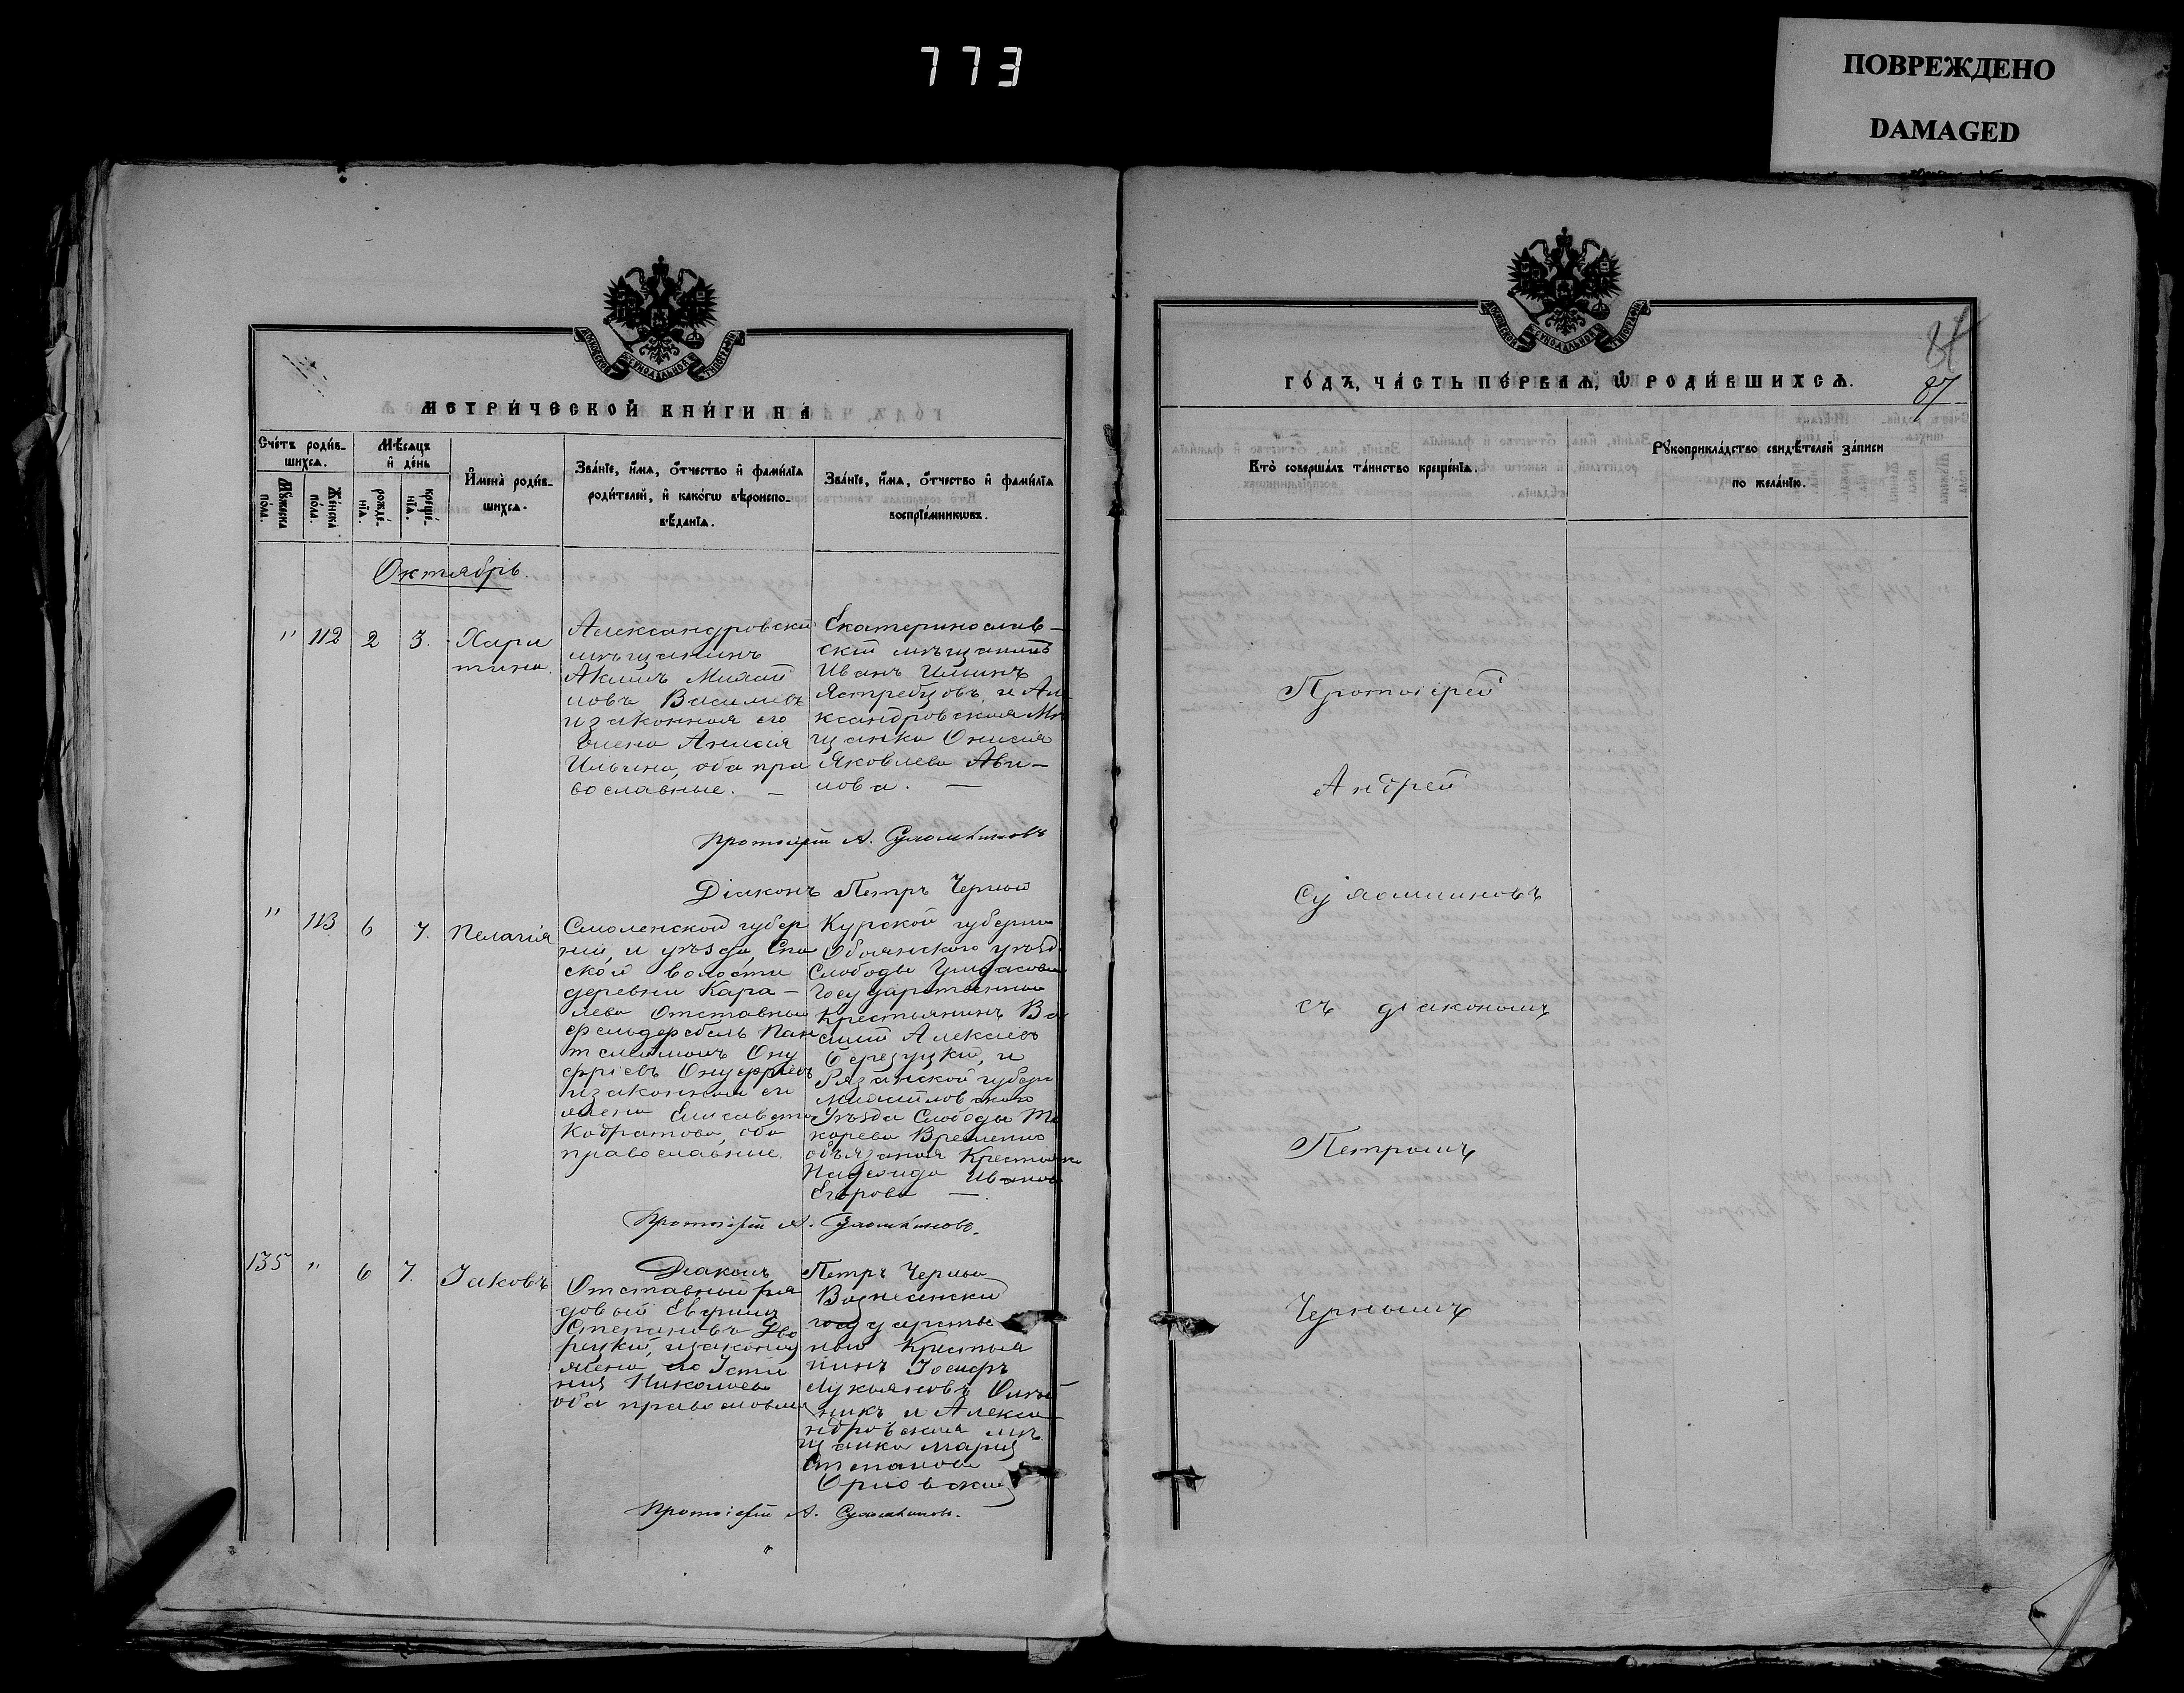 773
ПОВРЕЖДЕНО
DAMAGED
МОСКОВСКОЙ СѴНОДАЛЬНОЙ ТИПОГРАФІИ
МЕТРИ́ЧЕСКОЙ КНИ́ГИ НА
Сче́тъ роди́в-
шихсѧ.
Мꙋ́жеска по́ла.
Же́нска по́ла.
Мѣ́сѧцъ
и҆ де́нь
рожде́нїѧ.
креще́нїѧ.
И҆мена̀ роди́в-
шихсѧ.
Зва́нїе, и҆́мѧ, ѻ҆́тчество и҆ фами́лїѧ
роди́телей, и҆ како́гѡ вѣроиспо-
вѣ́данїѧ.
Зва́нїе, и҆́мѧ, ѻ҆́тчество и҆ фами́лїѧ
воспрїе́мникѡвъ.
Октябрь.
" 112 2 3. Хари
тина.
Александровскій
мѣщанинъ
Акимъ Михай
ловъ Васильевъ
и законная его
жена Анисія
Ильина, оба пра
вославные. —
Екатеринослав-
скій мѣщанинъ
Иванъ Ильинъ
Ястребцовъ, и Але
ксандровская Мѣ
щанка Онисія
Яковлева Ави-
лова. —
Протоіерей А.
Діаконъ Петръ Черный
" 113 6 7. Пелагія
Смоленской губер
ніи, и уѣзда, Спа
ской волости
деревни Кара-
лева Отставный
фельдфебель Пан
телимонъ Ону
фріевъ Онуфріевъ
и законная его
жена Елисавета
Кодратова, оба
православные.
Курской губерніи
Обоянского уѣзда
Слободы
Государственный
Крестьянинъ Ва
силій Алексіевъ
Березуцкій, и
Рязанской губерн
Михайловского
Уѣзда Слободы
Временно
обязаная Крестьянка
Надежда Иванова
Егорова —
Протоіерей А.
Діаконъ Петръ Черный
135 " 6 7. Іаковъ
Отставный ря
довый Евфимъ
Степановъ Дво
рецкій, и законная
жена его Іусти
нія Николаева
оба православные
Вознесенскій
государстве
ный Крестья
нинъ Іосифъ
Лукьяновъ Олей
никъ и Алекса-
ндровская мѣ
щанка Марія
Степанова
Орловская
Протоіерей А.
МОСКОВСКОЙ СѴНОДАЛЬНОЙ ТИПОГРАФІИ
87
ГО́ДЪ, ЧА́СТЬ ПЕ́РВАѦ, Ѡ҆ РОДИ́ВШИХСѦ.
Кто̀ соверша́лъ та́инство креще́нїѧ.
Рꙋкоприкла́дство свидѣ́телей за́писи
по жела́нїю.
Протоіерей
Андрей
съ діакономъ
Петромъ
Чернымъ